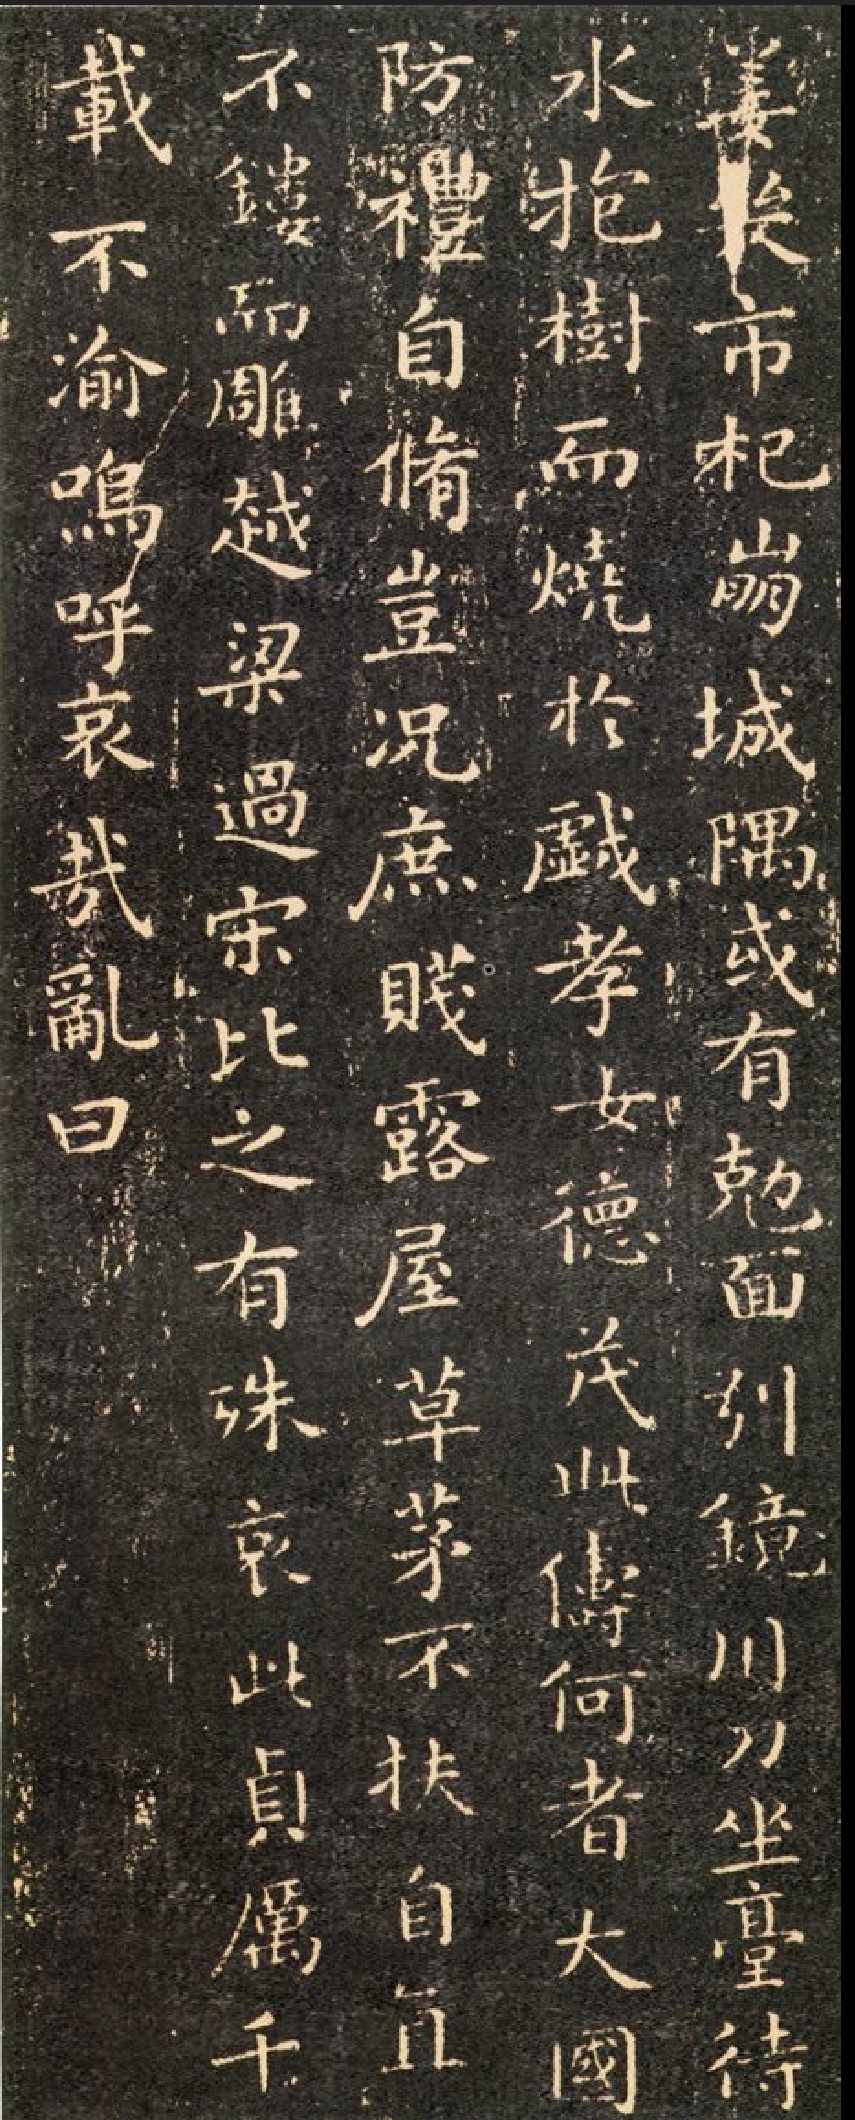 姜市杞崩城隅或有尅面引鏡川刀坐臺待
水抱樹而燒於戲孝女德茂此儔何者大國
防禮自脩豈况庶賤露屋草茅不扶自直
不鏤而雕越梁過宋比之有殊哀此貞厲千
載不渝嗚呼哀哉亂曰